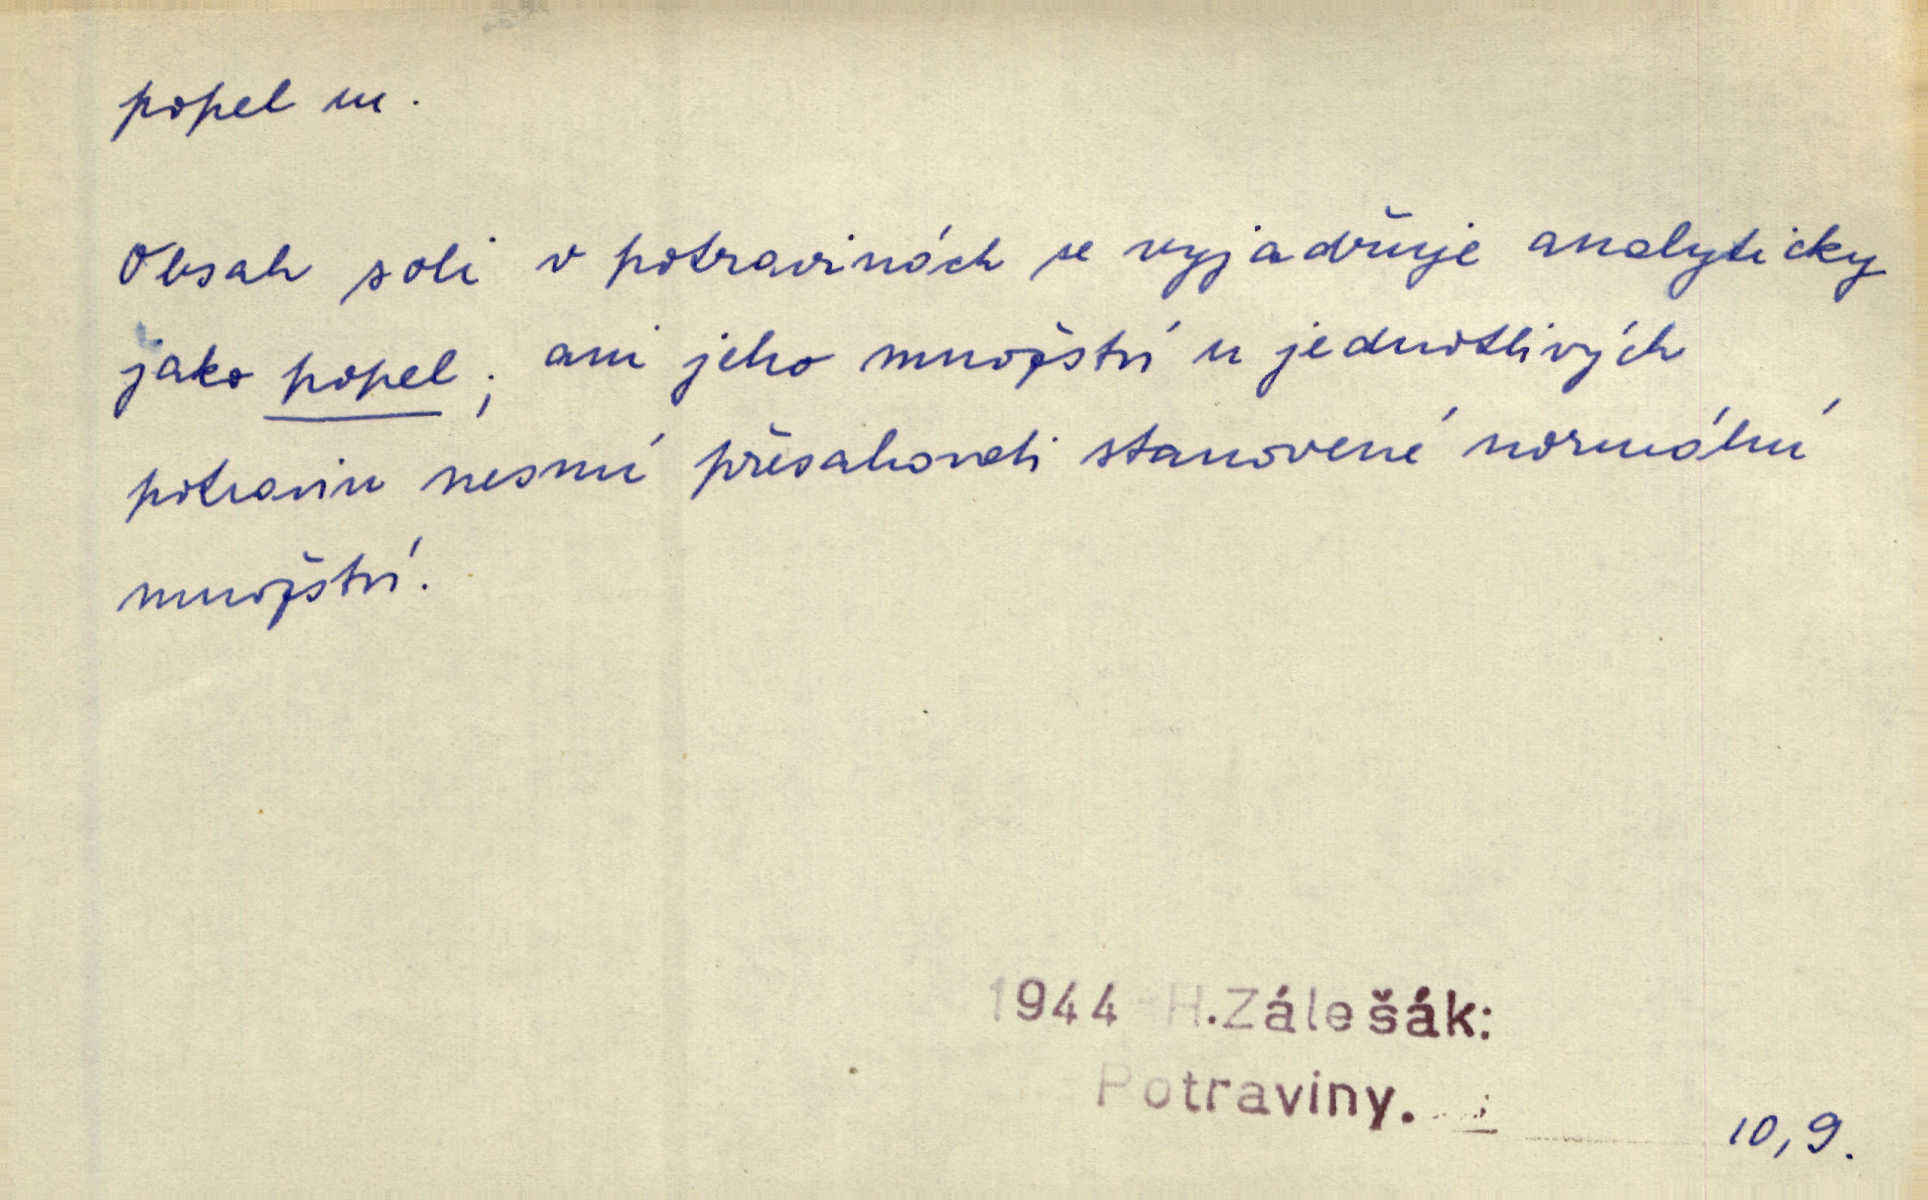 popel m.
Obsah soli v potravinách se vyjadřuje analyticky
jako popel; ani jeho množství u jednotlivých
potravin nesmí přesahovati stanovené normální
množství.
1944 - H.Zálešák:
Potraviny.
10,9.